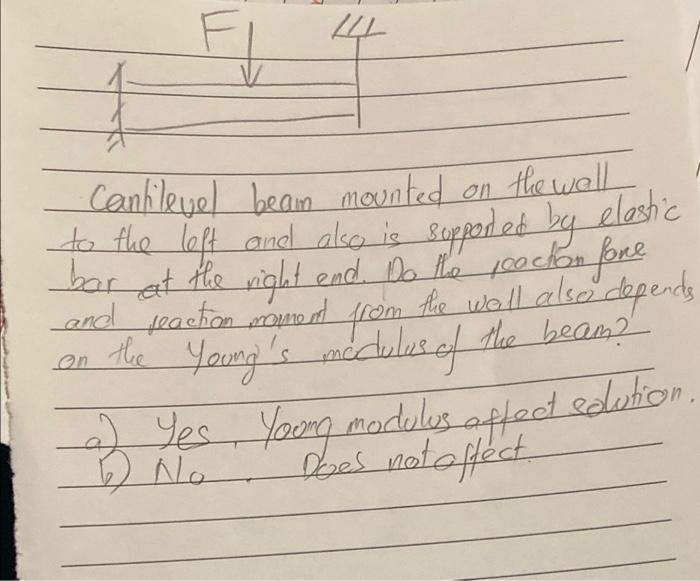 F
Cantilevel beam mounted on the wall
to the left and also is supported by elastic
bar at the right end. Do the reaction force
and reaction moment from the wall also depends
on the Young's modulus of the beam?
a) Yes, Young modulus affect solution.
b) No. Does not affect.